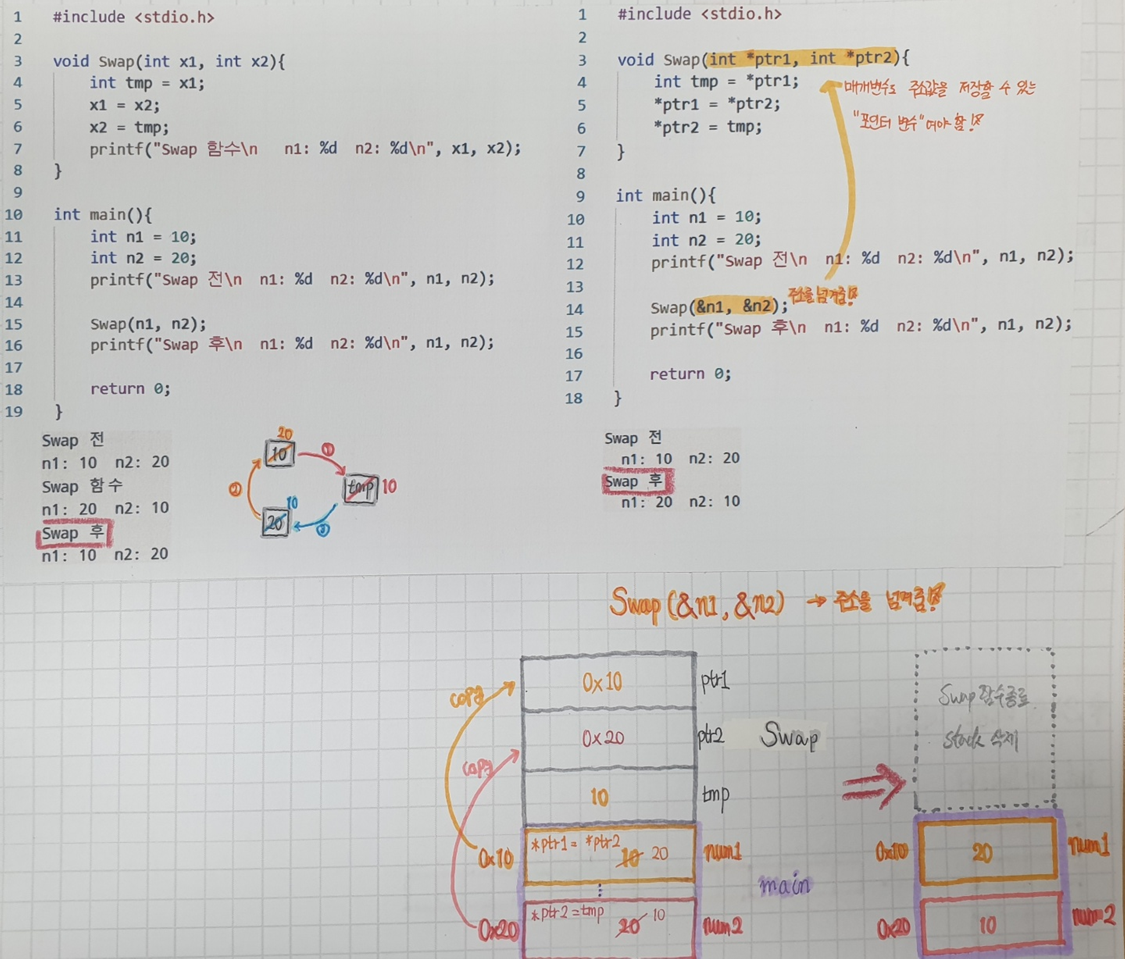 1 #include <stdio.h>
2
3 void Swap(int x1, int x2){
4 int tmp = x1;
5 x1 = x2;
6 x2 = tmp;
7 printf("Swap 함수\n n1: %d n2: %d\n", x1, x2);
8 }
9
10 int main(){
11 int n1 = 10;
12 int n2 = 20;
13 printf("Swap 전\n n1: %d n2: %d\n", n1, n2);
14
15 Swap(n1, n2);
16 printf("Swap 후\n n1: %d n2: %d\n", n1, n2);
17
18 return 0;
19 }
Swap 전
n1: 10 n2: 20
Swap 함수
n1: 20 n2: 10
Swap 후
n1: 10 n2: 20
20
10
①
tmp 10
②
10
20
③
1 #include <stdio.h>
2
3 void Swap(int *ptr1, int *ptr2){
4 int tmp = *ptr1;
5 *ptr1 = *ptr2;
6 *ptr2 = tmp;
7 }
8
9 int main(){
10 int n1 = 10;
11 int n2 = 20;
12 printf("Swap 전\n n1: %d n2: %d\n", n1, n2);
13
14 Swap(&n1, &n2);
15 printf("Swap 후\n n1: %d n2: %d\n", n1, n2);
16
17 return 0;
18 }
매개변수도 주소값을 저장할 수 있는
"포인터 변수"여야 함!
주소를 넘겨줌!
Swap 전
n1: 10 n2: 20
Swap 후
n1: 20 n2: 10
Swap(&n1, &n2) → 주소를 넘겨줌!
copy
0x10 ptr1
copy
0x20 ptr2 Swap
10 tmp
0x10 *ptr1 = *ptr2 10 20 num1
⋮ main
0x20 *ptr2 = tmp 20 10 num2
Swap 함수종료
stack 삭제
0x10 20 num1
0x20 10 num2